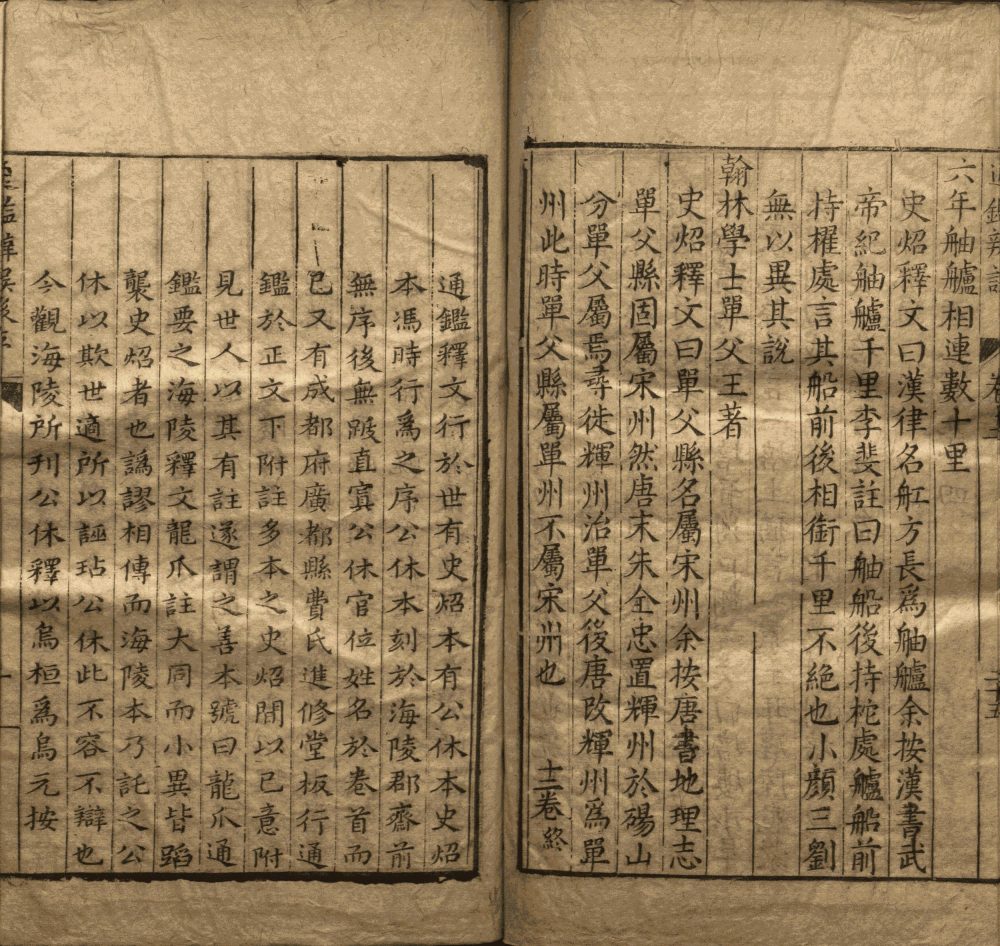 六年舳艫相連數十里
史炤釋文曰漢律名舡方長爲舳艫余按漢書武
帝紀舳艫千里李斐註曰舳船後持柁處艫船前
持櫂處言其船前後相銜千里不絶也小顔三劉
無以異其説
翰林學士單父王著
史炤釋文曰單父縣名屬宋州余按唐書地理志
單父縣固屬宋州然唐末朱全忠置輝州於碭山
分單父屬焉尋徙輝州治單父後唐改輝州爲單
州此時單父縣屬單州不屬宋州也 十二卷終
通鑑釋文行於世有史炤本有公休本史炤
本馮時行爲之序公休本刻於海陵郡齋前
無序後無跋直寘公休官位姓名於卷首而
已又有成都府廣都縣費氏進修堂板行通
鑑於正文下附註多本之史炤間以已意附
見世人以其有註遂謂之善本號曰龍爪通
鑑要之海陵釋文龍爪註大同而小異皆蹈
襲史炤者也譌謬相傳而海陵本乃託之公
休以欺世適所以誣玷公休此不容不辯也
今觀海陵所刊公休釋以烏桓爲烏元按